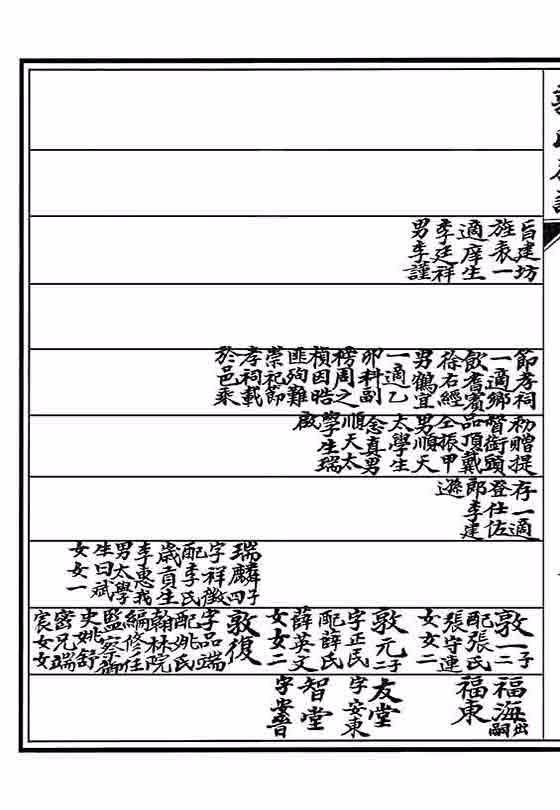 旨建坊
旌表一
適庠生
李廷祥
男李謹
節孝祠
一適鄉
飲耆賓
徐右經
男鶴宜
一適乙
卯科副
榜周之
楨因晧
匪殉難
崇祀節
孝祠載
於邑乘
初贈提
督銜頭
品頂戴
仝振甲
男順天
太學生
念真男
順天太
學生瑞
徵
存一適
登仕佐
郎李建
遜
瑞麟四子
字祥徵
配李氏
歲貢生
李惠我
男太學
生曰斌
女一
女
敦一三子
配張氏
張守連
女二
女
敦元二子
字正民
配薛氏
薛英文
女二
女
敦復
字品端
配姚氏
翰林院
編修任
監察御
史姚舒
密兄端
宸女女
福海出嗣
福東
友堂
字安東
智堂
字安晉